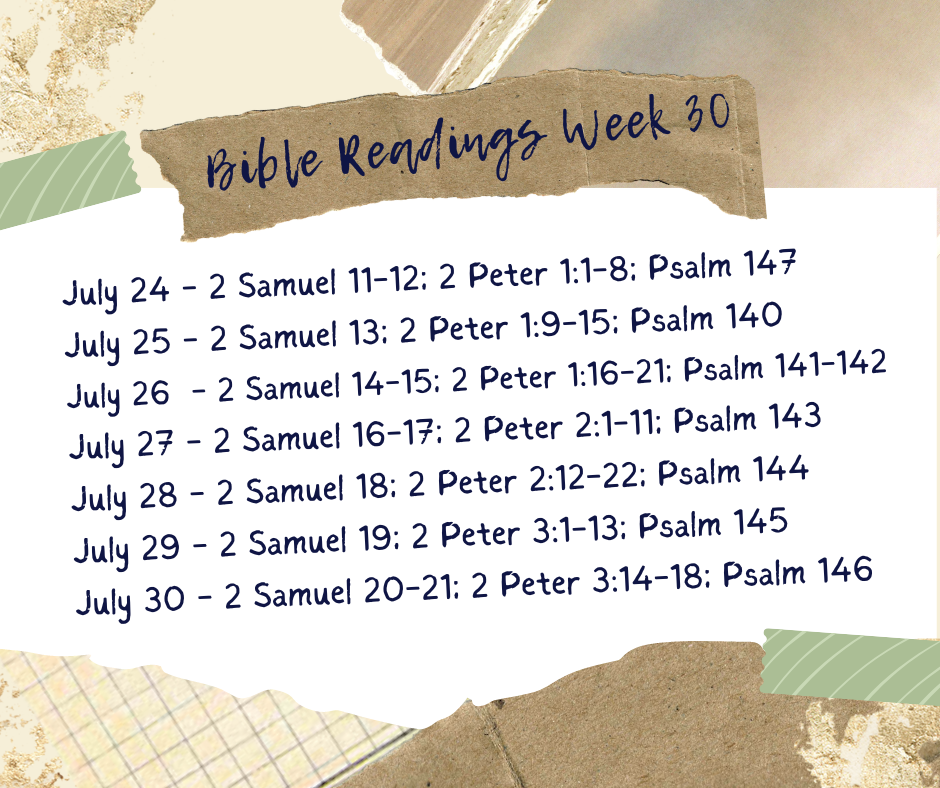 Bible Readings Week 30
July 24 - 2 Samuel 11-12; 2 Peter 1:1-8; Psalm 147
July 25 - 2 Samuel 13; 2 Peter 1:9-15; Psalm 140
July 26 - 2 Samuel 14-15; 2 Peter 1:16-21; Psalm 141-142
July 27 - 2 Samuel 16-17; 2 Peter 2:1-11; Psalm 143
July 28 - 2 Samuel 18; 2 Peter 2:12-22; Psalm 144
July 29 - 2 Samuel 19; 2 Peter 3:1-13; Psalm 145
July 30 - 2 Samuel 20-21; 2 Peter 3:14-18; Psalm 146